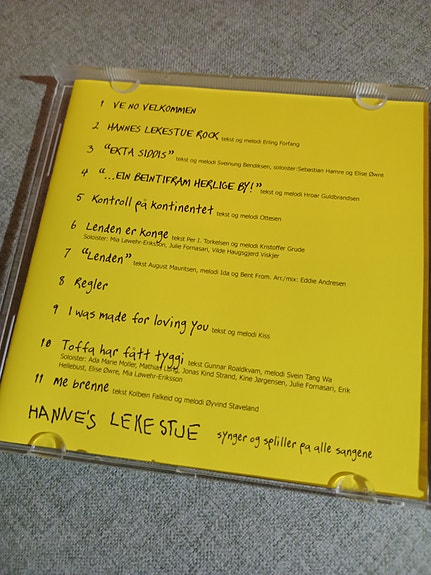 1 VE NO VELKOMMEN
2 HANNES LEKESTUE ROCK tekst og melodi Erling Forfang
3 "EKTA SIDDIS" tekst og melodi Sveinung Bendiksen, solister:Sebastian Hamre og Elise Øwre
4 "...EIN BEINTIFRAM HERLIGE BY!" tekst og melodi Hroar Guldbrandsen
5 Kontroll på kontinentet tekst og melodi Ottesen
6 Lenden er konge tekst Per I. Torkelsen og melodi Kristoffer Grude
Solister: Mia Løwehr-Erikson, Julie Fornasari, Vilde Haugsgjerd Viskjer
7 "Lenden" tekst August Mauritsen, melodi Ida og Bent From. Arr./mix: Eddie Andresen
8 Regler
9 I was made for loving you tekst og melodi Kiss
10 Toffa har fått tyggi tekst Gunnar Roaldkvam, melodi Svein Tang Wa
Solister: Ada Marie Moller, Mathias Lang, Jonas Kind Strand, Kine Jørgensen, Julie Fornasari, Erik
Hellebust, Elise Øwre, Mia Løwehr-Eriksson
11 me brenne tekst Kolbein Falkeid og melodi Øyvind Staveland
HANNE'S LEKESTUE synger og spliller på alle sangene